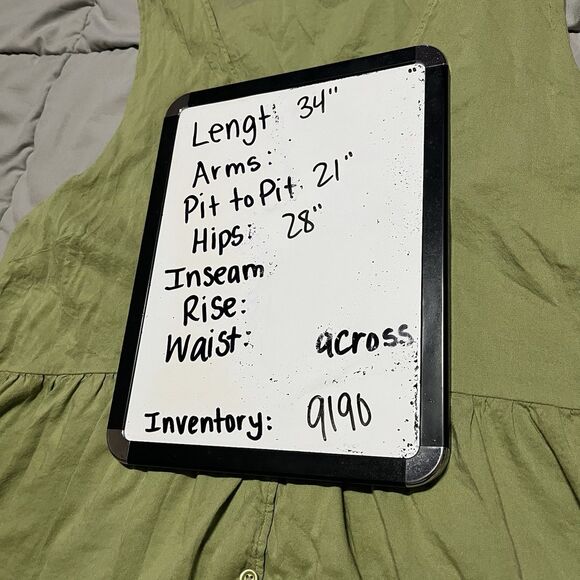 Lengt 34"
Arms:
Pit to Pit. 21"
Hips: 28"
Inseam
Rise:
Waist: across
Inventory: 9190